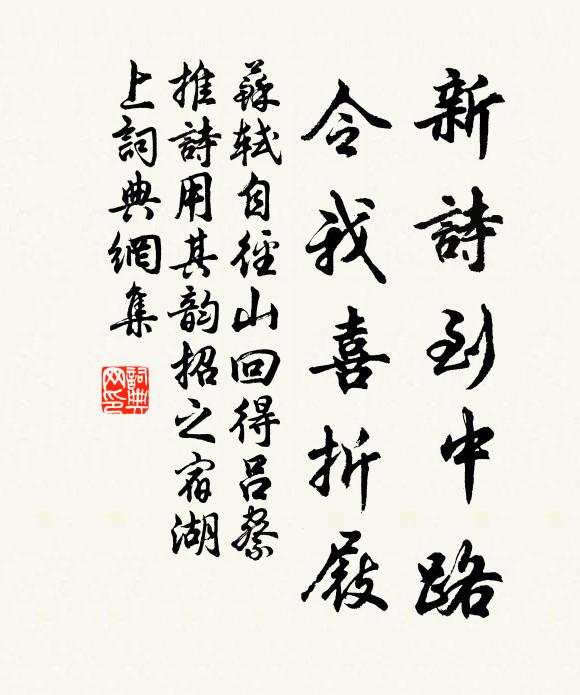 新詩到中路
令我喜折屐
蘇軾自徑山回得呂察
推詩用其韵招之宿湖
上詞典網集
詞典
网印